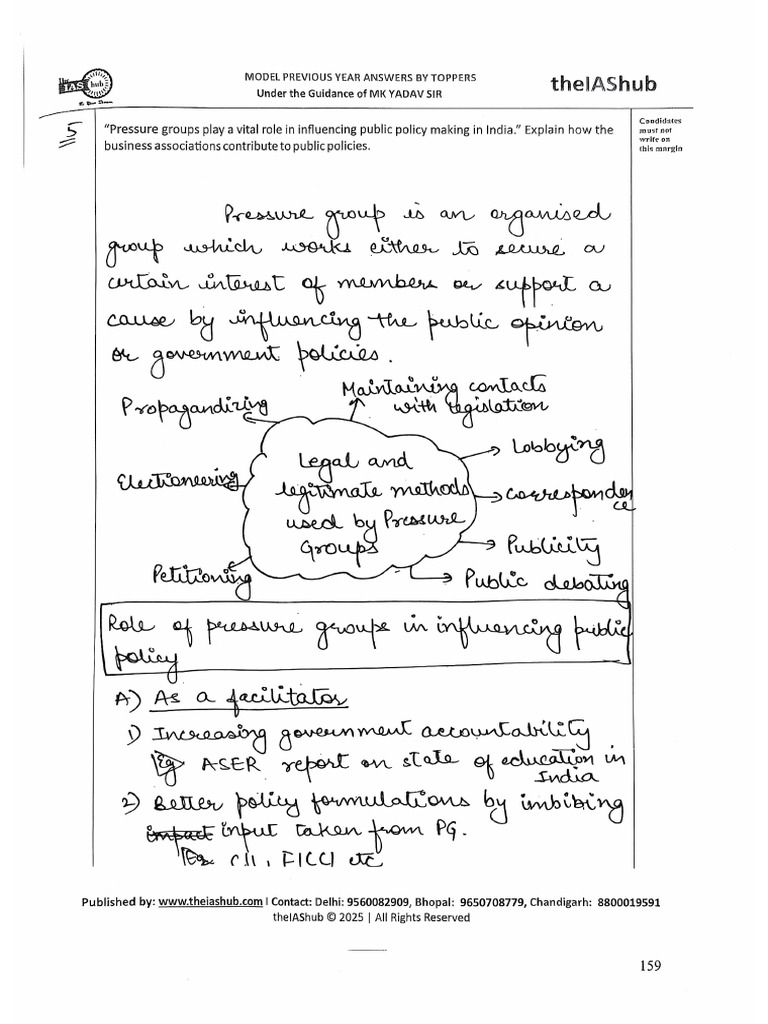 The IAS hub
MODEL PREVIOUS YEAR ANSWERS BY TOPPERS
Under the Guidance of MK YADAV SIR
theIAShub
5
"Pressure groups play a vital role in influencing public policy making in India." Explain how the
business associations contribute to public policies.
Candidates
must not
write on
this margin
Pressure group is an organised
group which works either to secure a
certain interest of members or support a
cause by influencing the public opinion
or government policies.
Propagandizing
Maintaining contacts
with legislation
Electioneering
Legal and
legitimate methods
used by Pressure
Groups
Lobbying
Correspondence
Publicity
Petitioning
Public debating
Role of pressure groups in influencing public
policy
A) As a facilitator
1) Increasing government accountability
Eg ASER report on state of education in
India
2) Better policy formulations by imbibing
impact input taken from PG.
Eg. CII, FICCI etc
Published by: www.theiashub.com I Contact: Delhi: 9560082909, Bhopal: 9650708779, Chandigarh: 8800019591
theIAShub © 2025 | All Rights Reserved
159